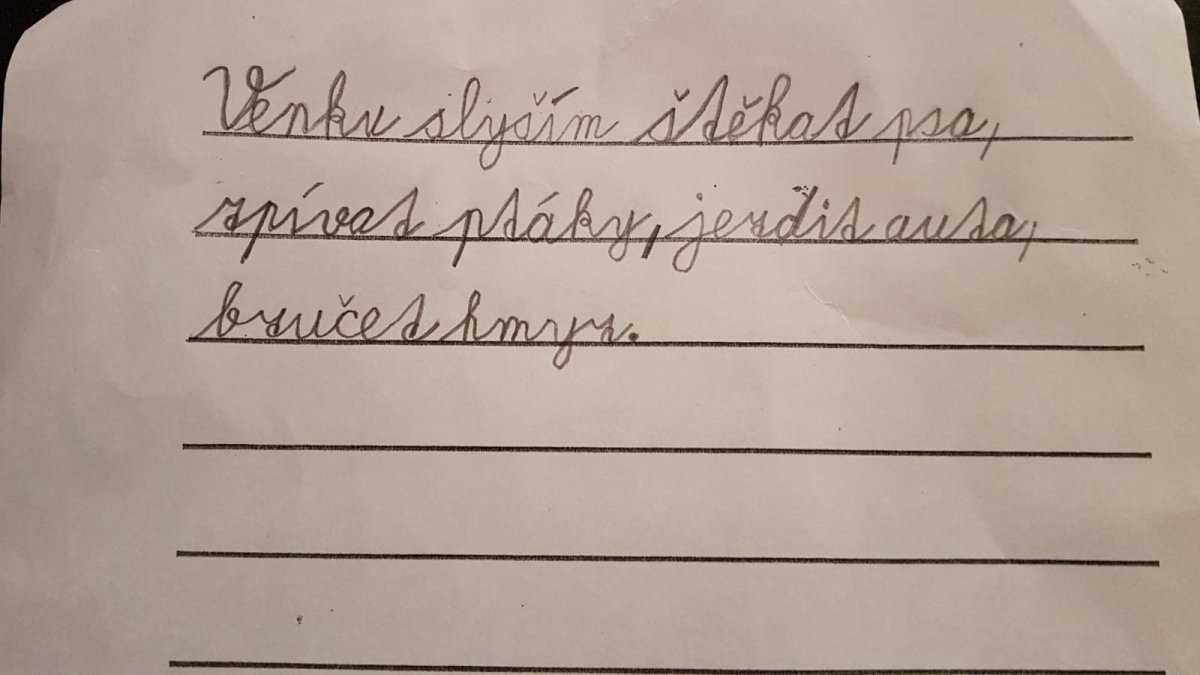 Venku slyším štěkat psa,
zpívat ptáky, jezdit auta,
bzučet hmyz.